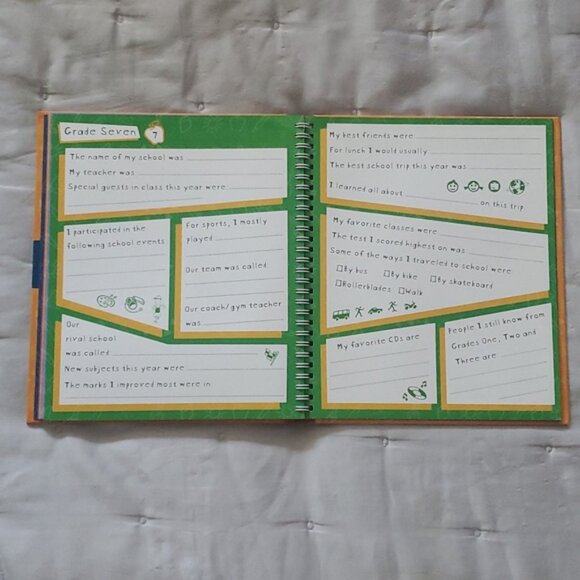 Grade Seven
7
The name of my school was
My teacher was
Special guests in class this year were
I participated in the
following school events
For sports, I mostly
played
Our team was called
Our coach/gym teacher
was
Our
rival school
was called
New subjects this year were
The marks I improved most were in
My best friends were
For lunch I would usually
The best school trip this year was
I learned all about
on this trip
My favorite classes were
The test I scored highest on was
Some of the ways I traveled to school were:
By bus By bike By skateboard
Rollerblades Walk
My favorite CDs are
People I still know from
Grades One, Two and
Three are